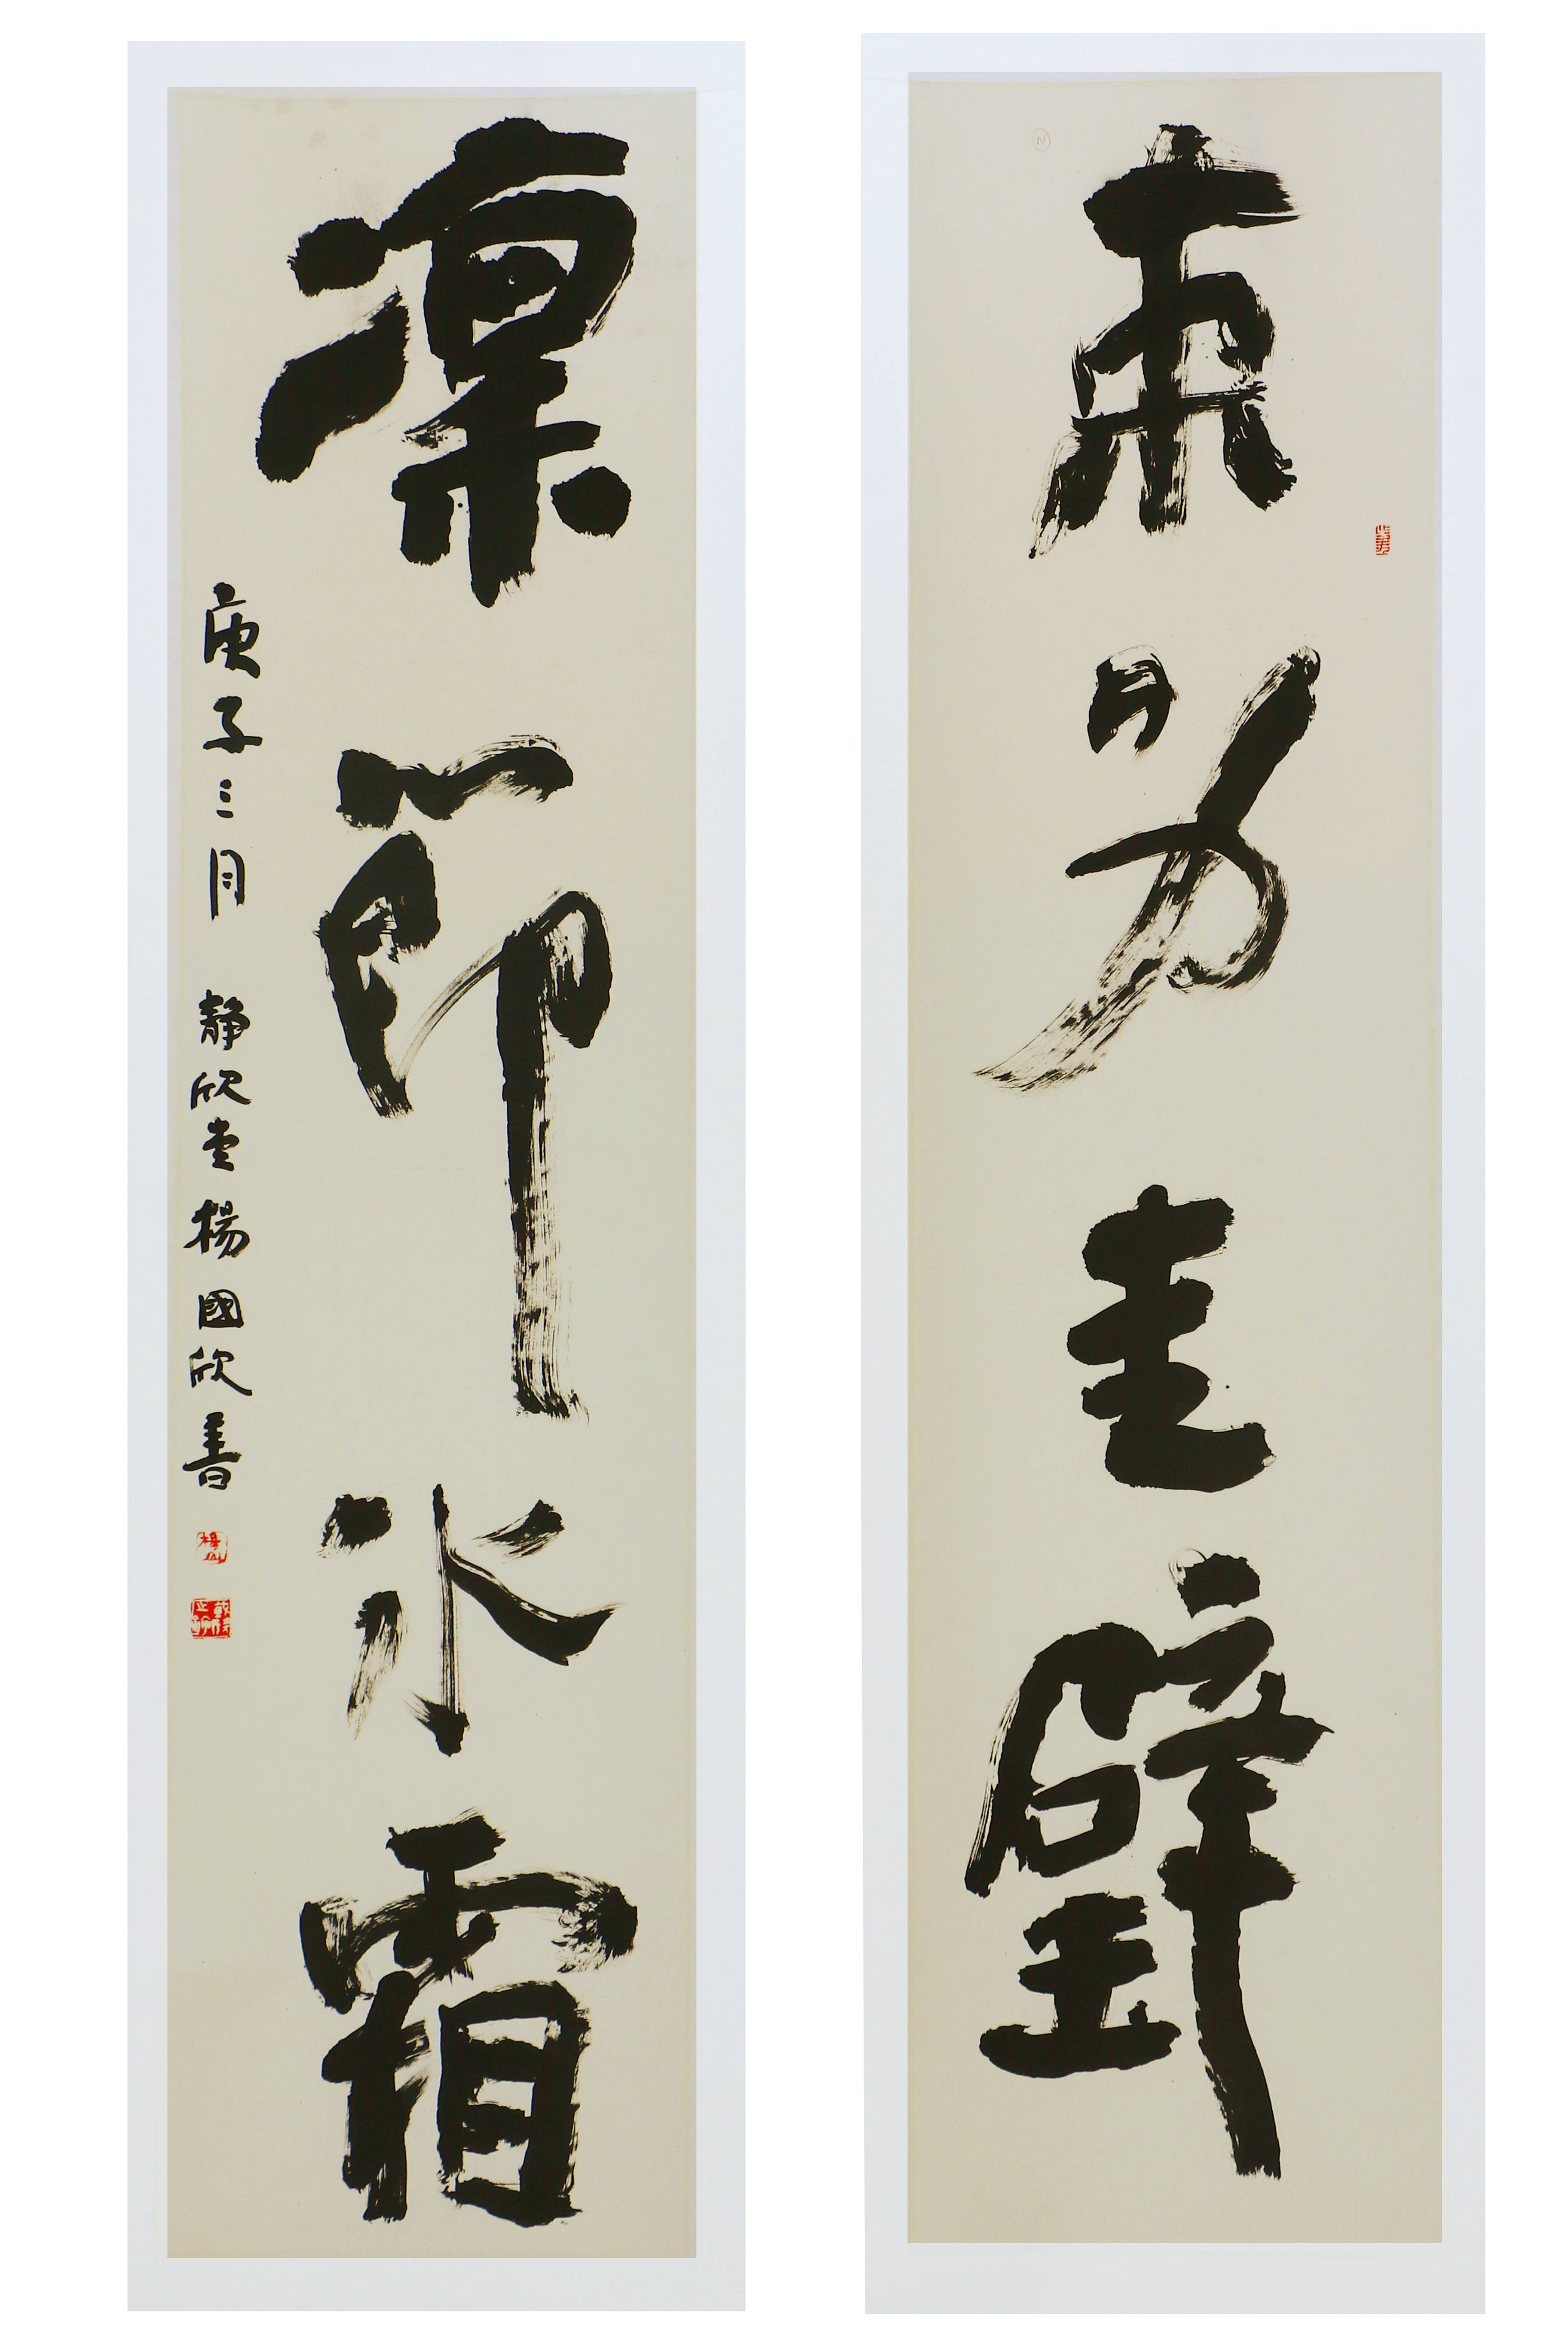 束圭璧
凜節冰霜
庚子三月 靜欣堂 楊國欣書